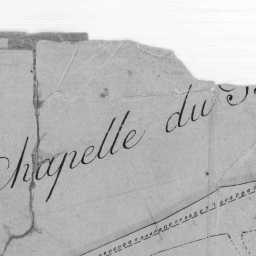 Chapelle du